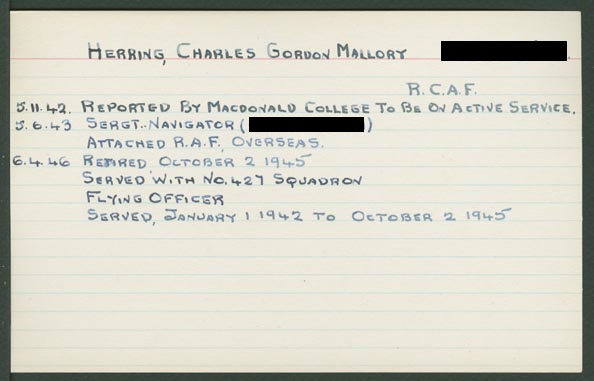 HERRING, CHARLES GORDON MALLORY
R.C.A.F.
5.11.42. REPORTED BY MACDONALD COLLEGE TO BE ON ACTIVE SERVICE.
5.6.43 SERGT. NAVIGATOR ( )
ATTACHED R.A.F. OVERSEAS.
6.4.46 RETIRED OCTOBER 2 1945
SERVED WITH NO. 427 SQUADRON
FLYING OFFICER
SERVED, JANUARY 1 1942 TO OCTOBER 2 1945